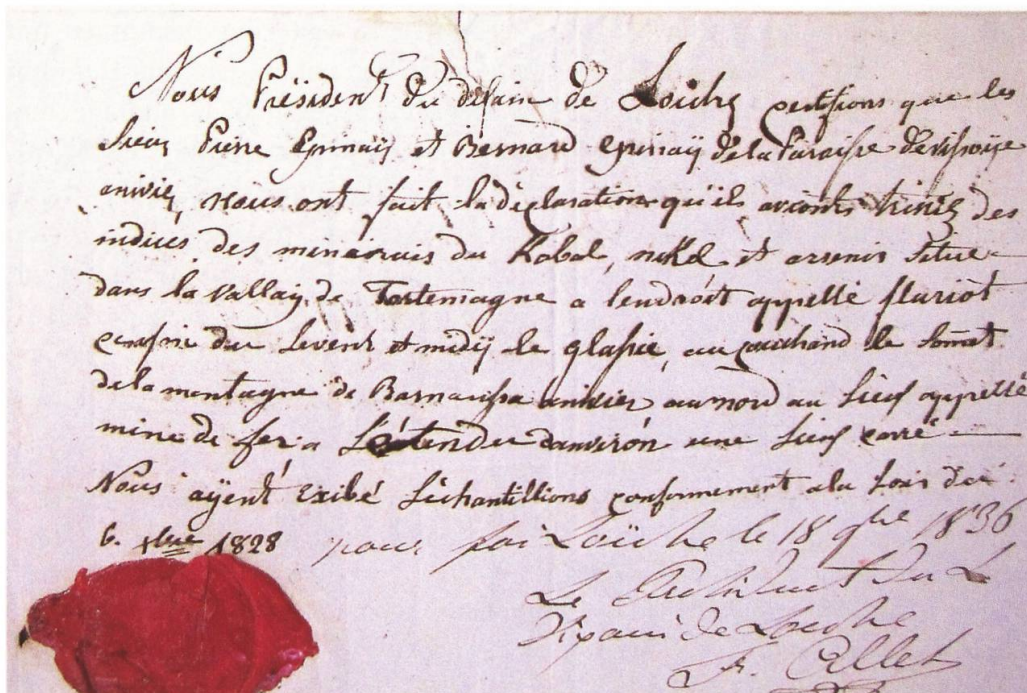 Nous Président du desain de Loiche certifions que les
Sieurs Pierre Epinaÿ et Bernard Epinaÿ de la Paroisse de vissoÿe
anivie, nous ont fait la déclaration qu'ils avoint des
indices des minerais du Kobal, nikel et arsenic situe
dans la vallaÿ de Tortemagne a lendroit appellé pluriot
du levent et midÿ le glasie, au couchand le somet
de la montagne de Barnaussa anivier au nord au lieux appellé
mine de fer a L'étendu danviron une lieux carré
Nous aÿent exibé Séchantillions conformement a la Lois du
6. 1828 pour foi Loiche le 18 9bre 1836
Le President du
Dixain de Loiche
F. Allet